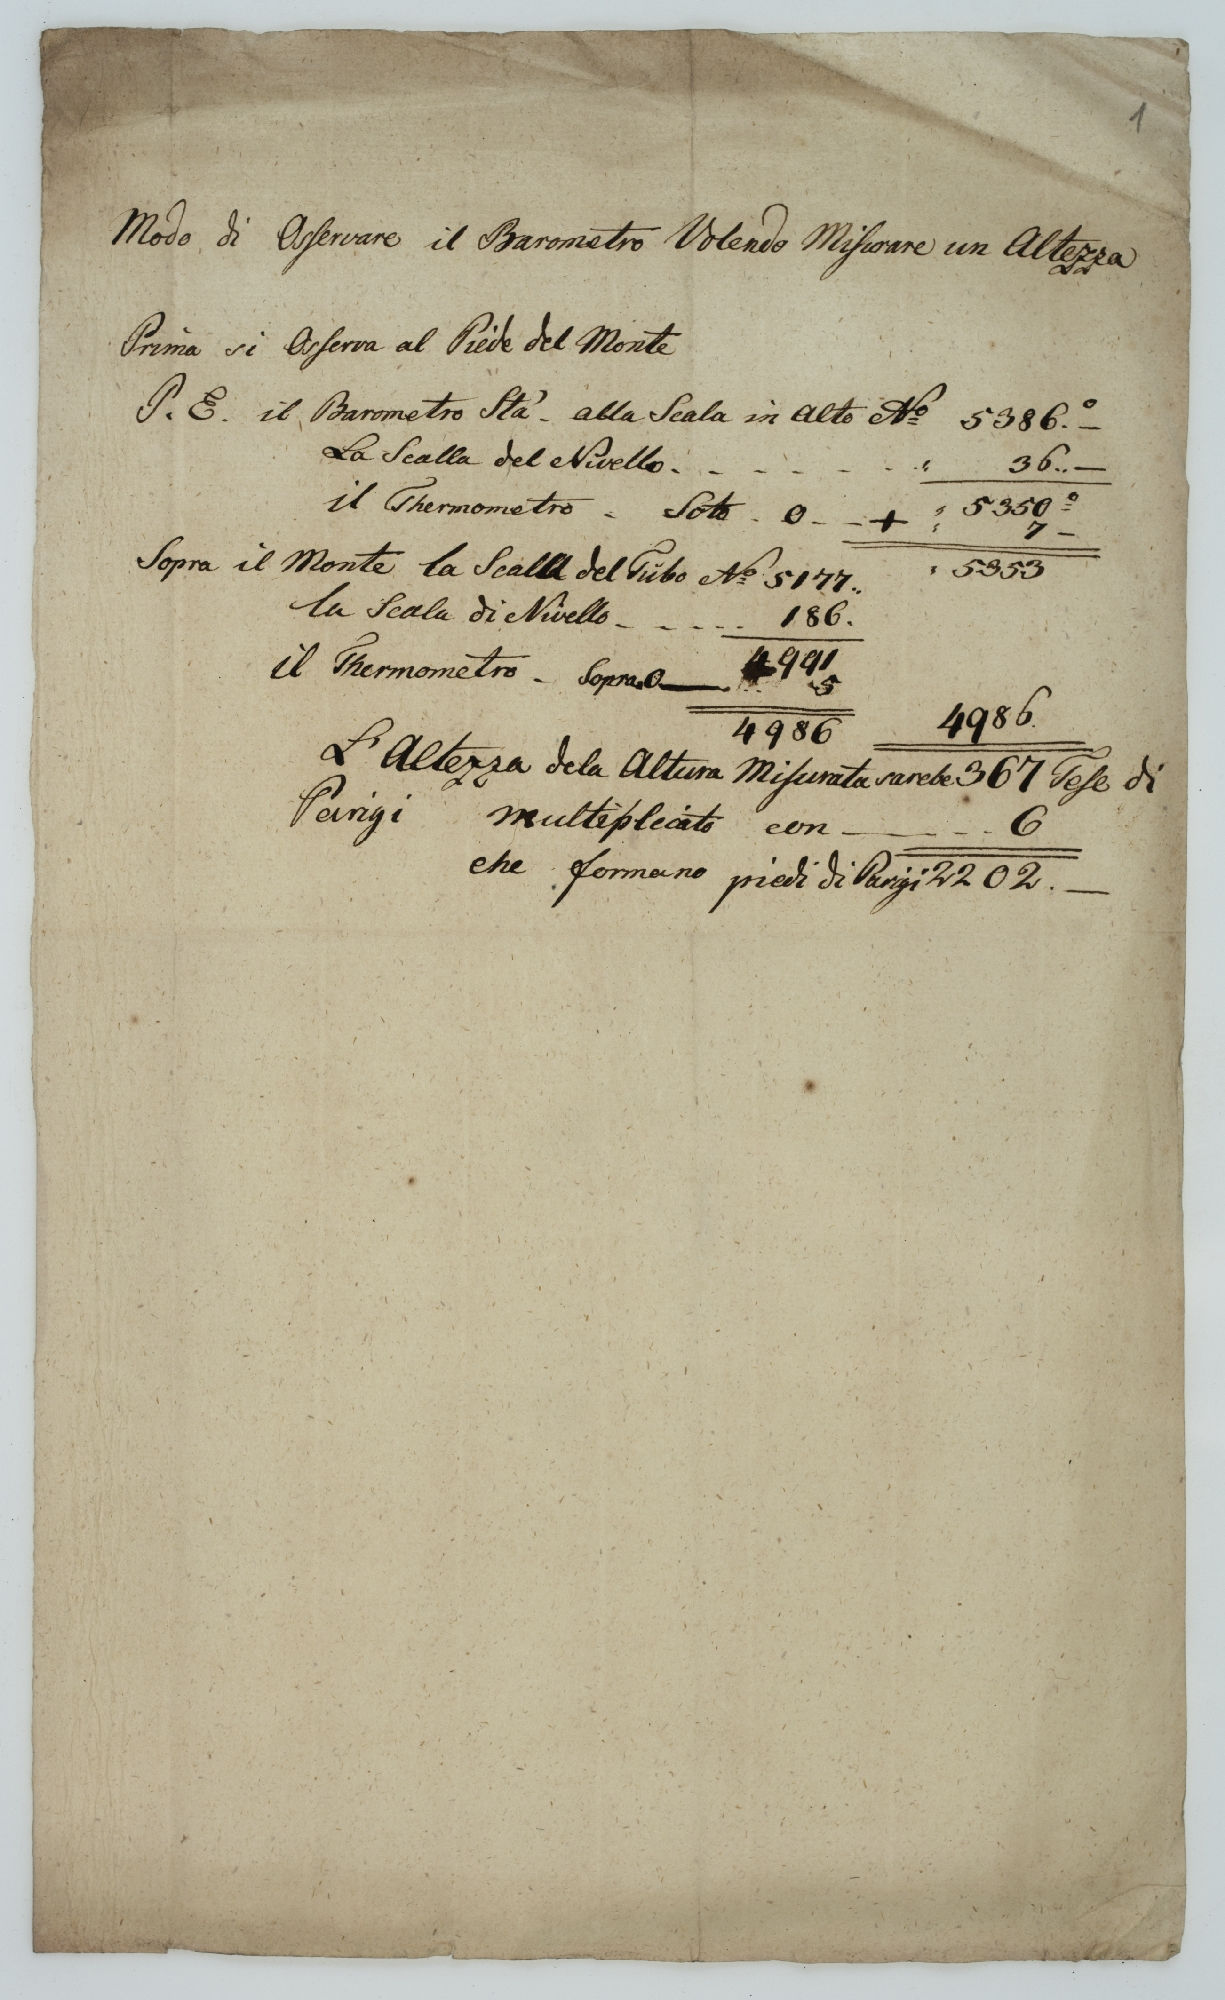 1
Modo di Osservare il Barometro Volendo Misurare un Altezza
Prima si Osserva al Piede del Monte
P. E. il Barometro Stà - alla Scala in Alto No 5386.° —
La Scalla del Nivello . - - - - - - " 36.. —
il Thermometro - Soto - 0 - - + " 5350°
" 7 —
Sopra il Monte la Scalla del Tubo No 5177.. " 5353
la Scala di Nivello - - - - - 186.
il Thermometro - Sopra 0 — 4991
5
4986 4986.
L'Altezza dela Altura Misurata sarebe 367 Tese di
Parigi multiplicato con — - - - 6
che formano piedi di Parigi 2202. —